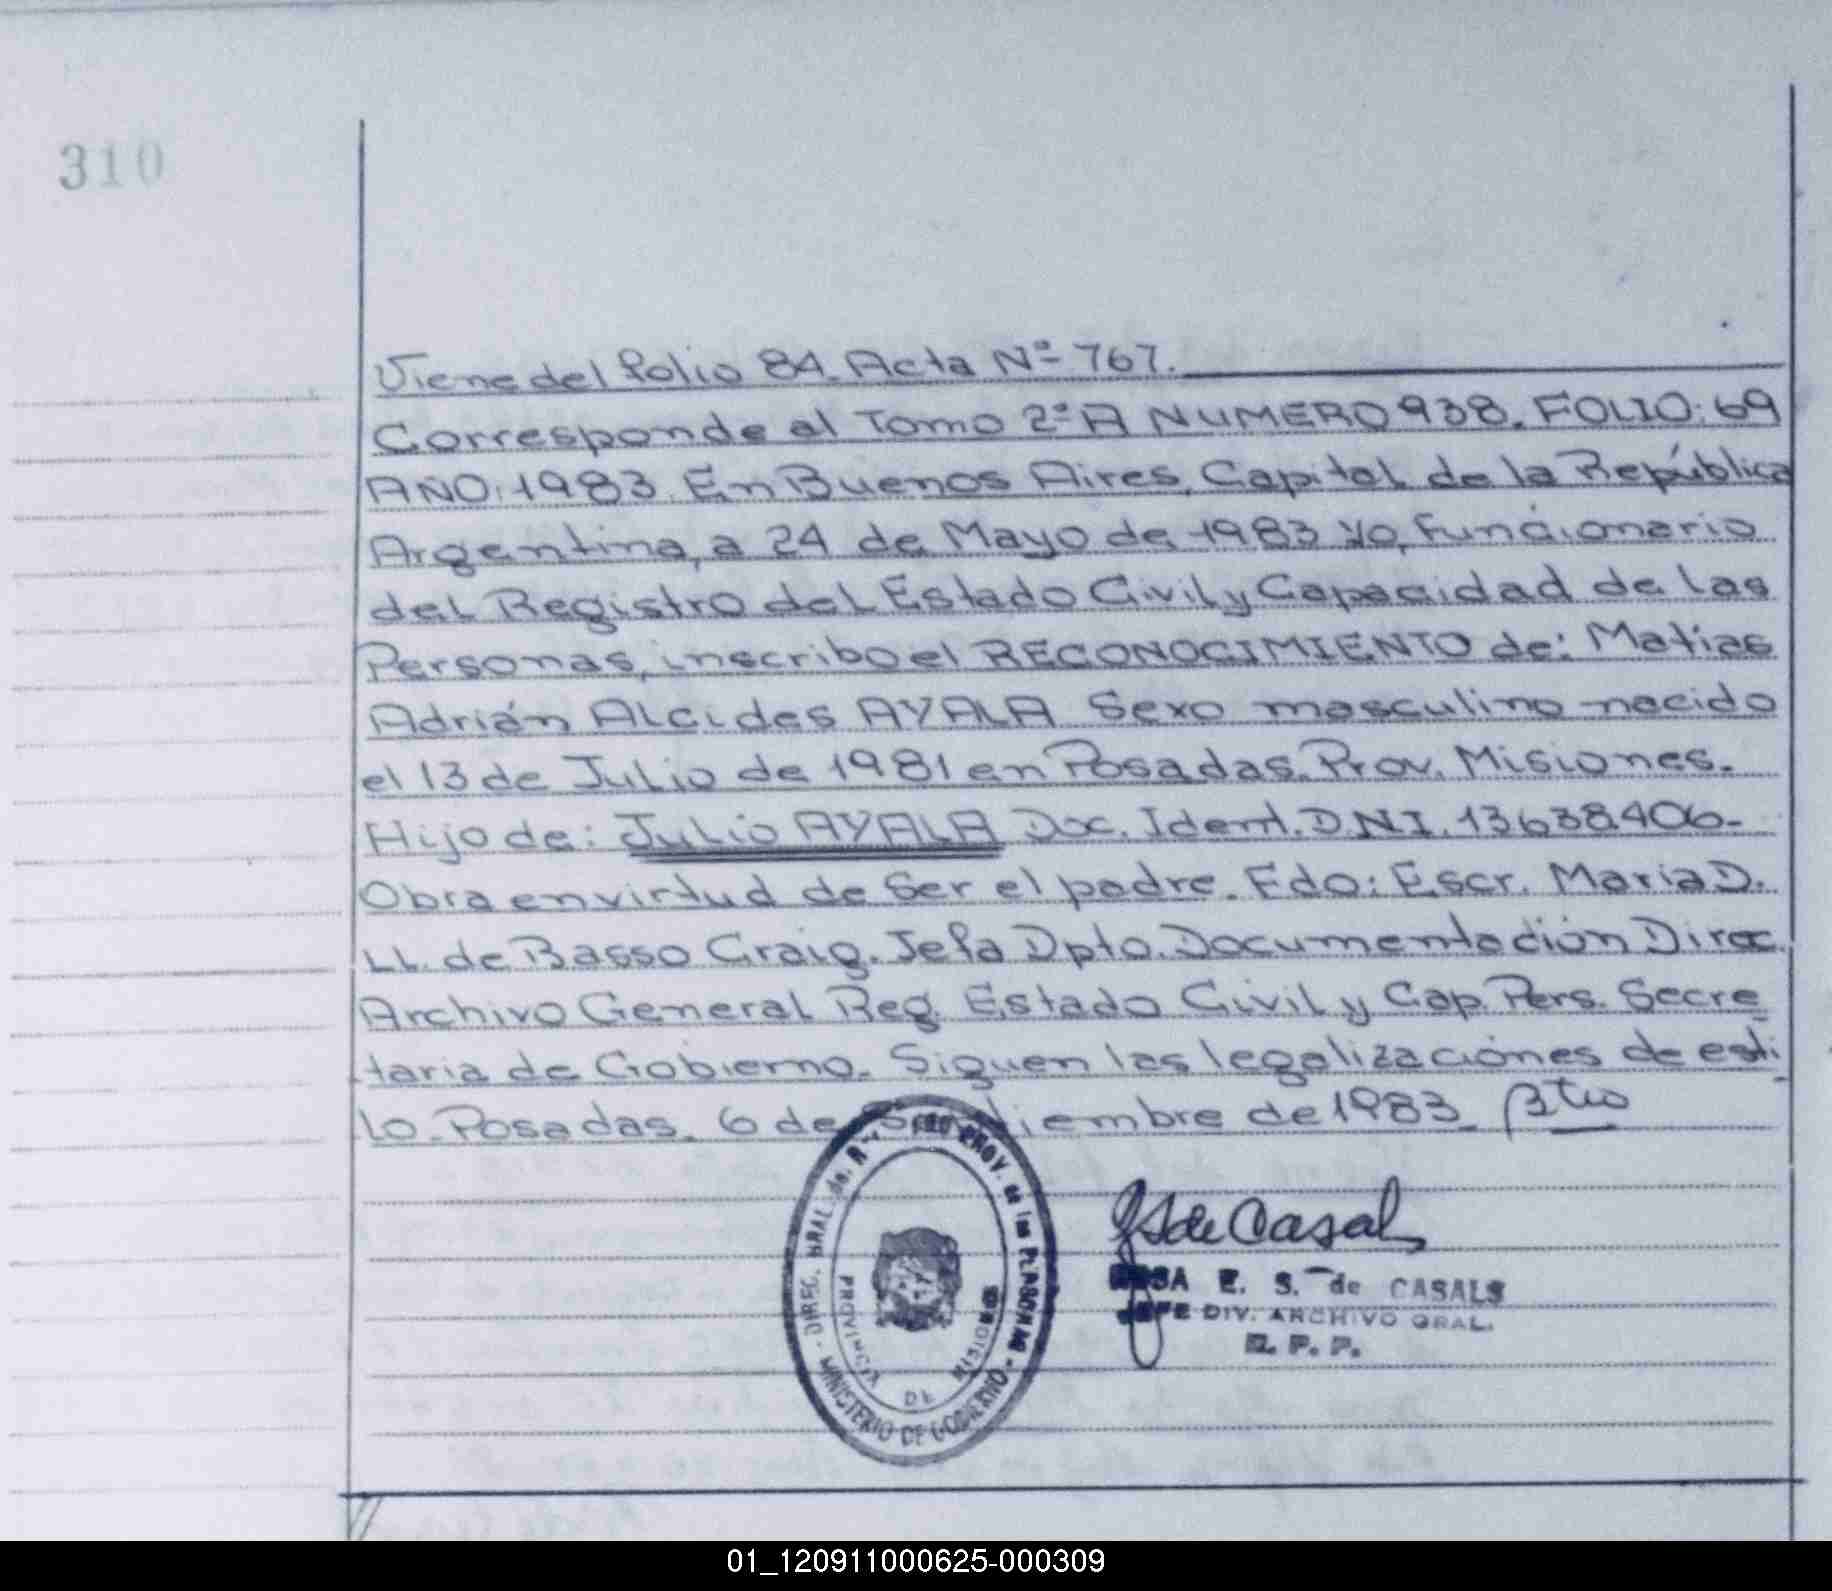 310
Viene del folio 84. Acta Nº 767.
Corresponde al Tomo 2º A NUMERO 938. FOLIO: 69
AÑO: 1983. En Buenos Aires, Capital de la República
Argentina, a 24 de Mayo de 1983 yo, funcionario
del Registro del Estado Civil y Capacidad de las
Personas, inscribo el RECONOCIMIENTO de: Matías
Adrián Alcides AYALA Sexo masculino nacido
el 13 de Julio de 1981 en Posadas. Prov. Misiones.
Hijo de: Julio AYALA Doc. Ident. D.N.I. 13638406.-
Obra en virtud de ser el padre. Fdo: Escr. Maria D.
LL. de Basso Craig. Jefa Dpto. Documentación Direc.
Archivo General Reg. Estado Civil y Cap. Pers. Secre
taria de Gobierno. Siguen las legalizaciónes de esti
lo. Posadas. 6 de diciembre de 1983.
de Casals
E. S. de CASALS
JEFE DIV. ARCHIVO GRAL.
DIREC. GRAL. del PROV. de las PERSONAS
MINISTERIO DE GOBIERNO
PROVINCIA DE MISIONES
01_120911000625-000309